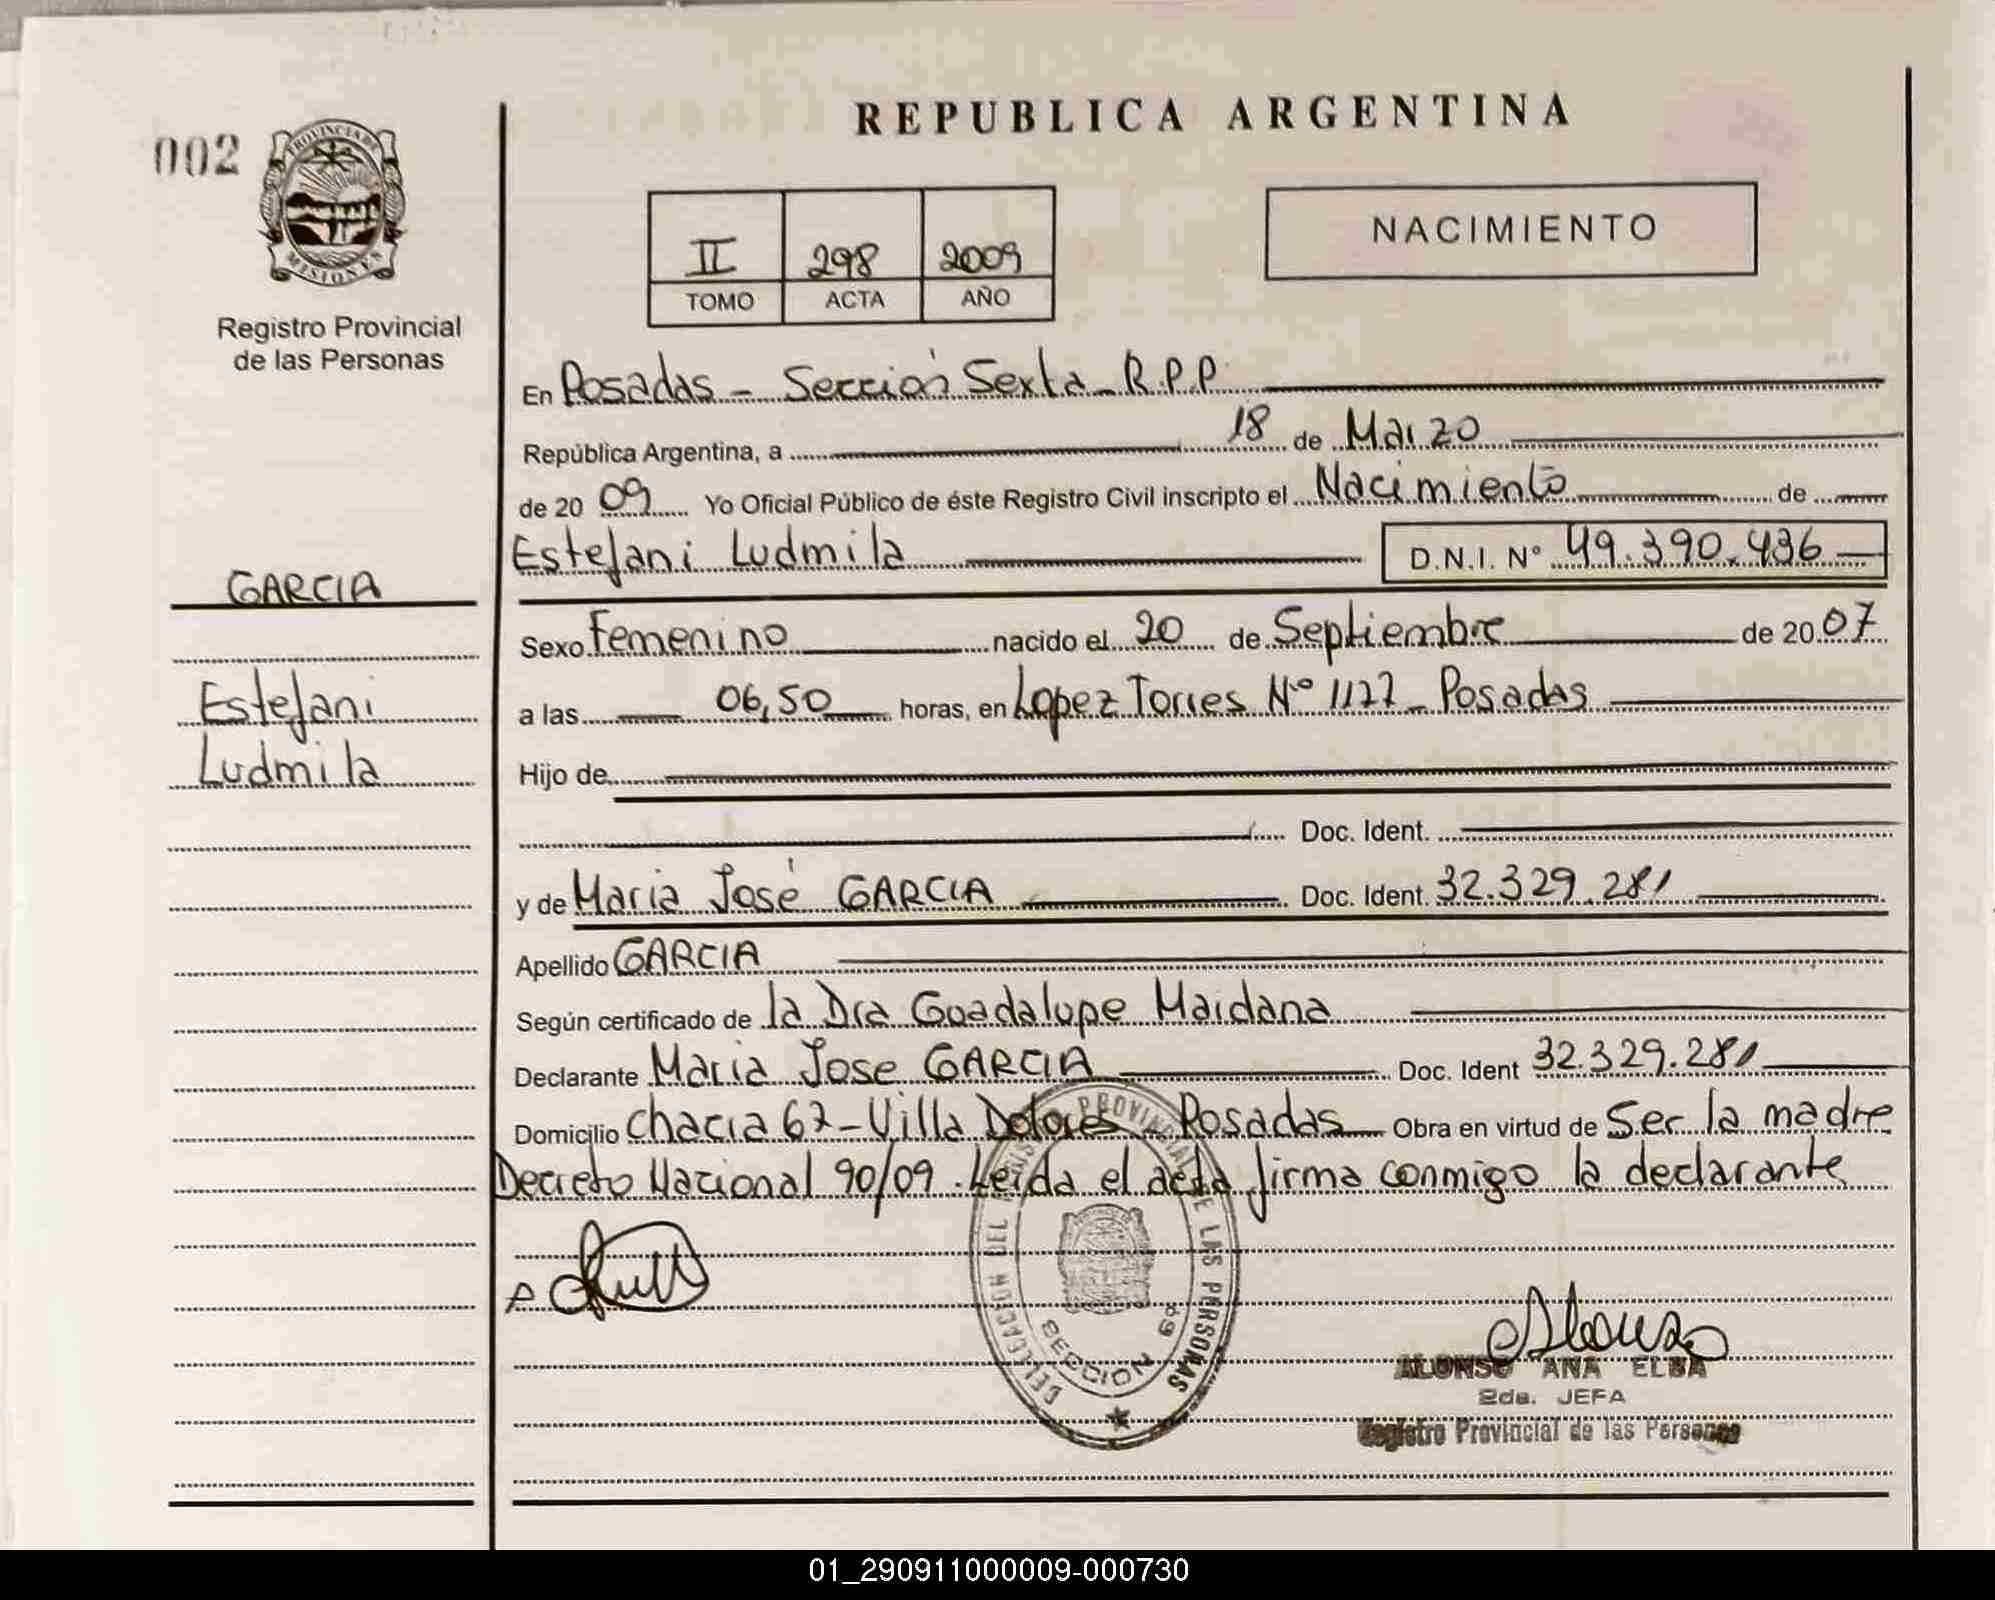 REPUBLICA ARGENTINA
002
PROVINCIA DE
MISIONES
Registro Provincial
de las Personas
II 298 2009
TOMO ACTA AÑO
NACIMIENTO
En Posadas - Sección Sexta - R.P.P.
República Argentina, a 18 de Marzo
de 20 09 Yo Oficial Público de éste Registro Civil inscripto el Nacimiento de
Estefani Ludmila D.N.I. Nº 49.390.436
GARCIA
Estefani
Ludmila
Sexo Femenino nacido el 20 de Septiembre de 20 07
a las 06,50 horas, en Lopez Torres Nº 1177 - Posadas
Hijo de
Doc. Ident.
y de Maria José GARCIA Doc. Ident. 32.329.281
Apellido GARCIA
Según certificado de la Dra Guadalupe Maidana
Declarante Maria Jose GARCIA Doc. Ident 32.329.281
Domicilio Chacra 67 - Villa Dolores - Posadas Obra en virtud de Ser la madre
Decreto Nacional 90/09. Leída el acta firma conmigo la declarante
DELEGACION DEL REGIS PROVINCIAL DE LAS PERSONAS
SECCION 6º
ALONSO ANA ELBA
2da. JEFA
Registro Provincial de las Personas
01_290911000009-000730